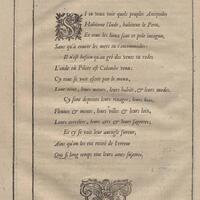 SI tu veux voir quels peuples Antipodes
Habitent l'Inde, habitent le Peru,
Et tous les lieux
Sans qu'à courir les mers tu t'incommodes:
Il n'est besoin qu'au gré des vents tu rodes
L'onde où Pilote est Colombe venu:
Cy tous se voit escrit par le menu,
Leur teint, leurs meurs, leurs habits, & leurs modes.
Cy sont depeints leurs visages, leurs loix,
Fleuves & monts, leurs villes & leurs bois,
Leurs cordelles, leurs arts & leurs sagettes;
Et cy se voit leur ancienne fureur,
Ains qu'on les eut retiré de l'erreur
Qui si long temps tint leurs ames sujettes.